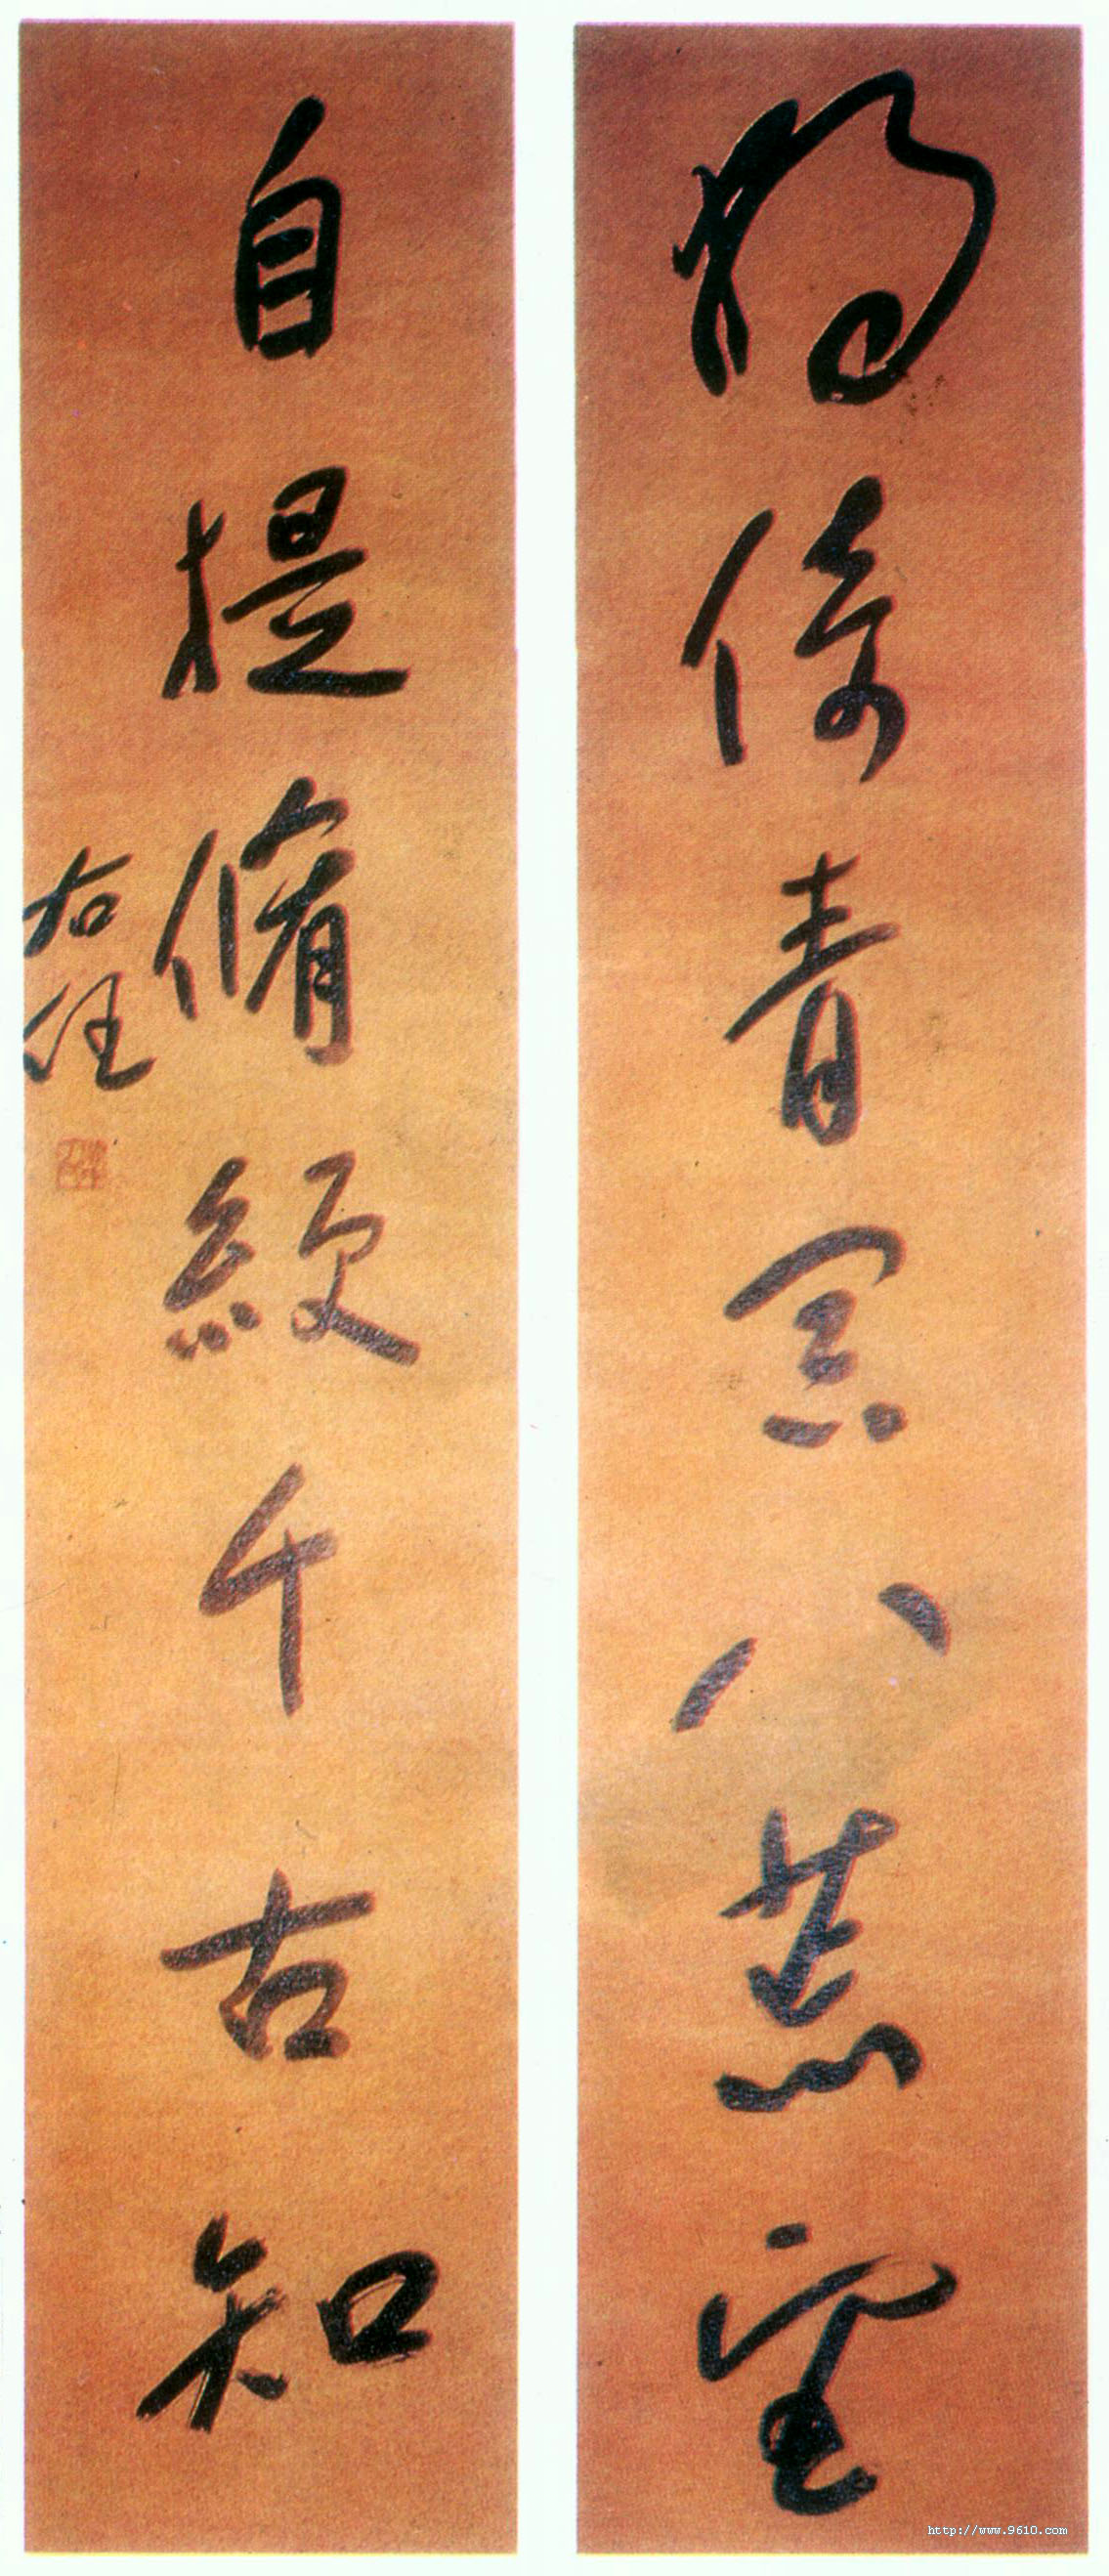 倚青冥八荒
自提脩綆千古知
右任
http://www.9610.com